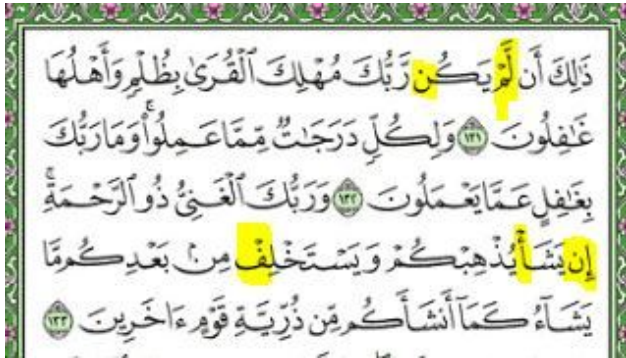 ذَٰلِكَ أَن لَّمْ يَكُن رَّبُّكَ مُهْلِكَ ٱلْقُرَىٰ بِظُلْمٍ وَأَهْلُهَا
غَٰفِلُونَ ١٣١ وَلِكُلٍّ دَرَجَٰتٌ مِّمَّا عَمِلُوا۟ ۚ وَمَا رَبُّكَ
بِغَٰفِلٍ عَمَّا يَعْمَلُونَ ١٣٢ وَرَبُّكَ ٱلْغَنِىُّ ذُو ٱلرَّحْمَةِ ۚ
إِن يَشَأْ يُذْهِبْكُمْ وَيَسْتَخْلِفْ مِنۢ بَعْدِكُم مَّا
يَشَآءُ كَمَآ أَنشَأَكُم مِّن ذُرِّيَّةِ قَوْمٍ ءَاخَرِينَ ١٣٣